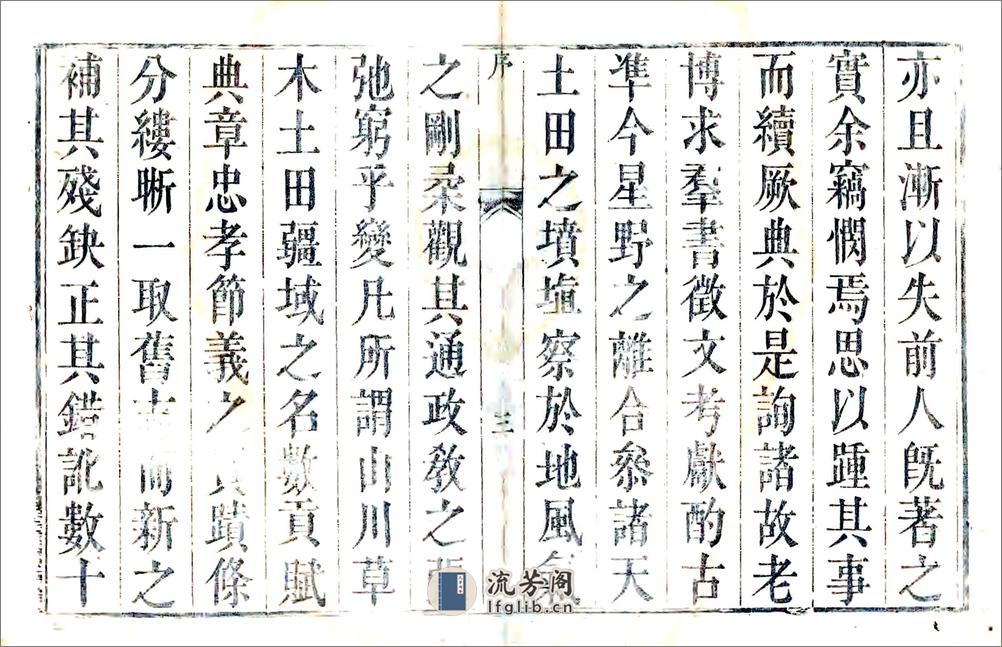 亦且漸以失前人旣著之
實余竊憫焉思以踵其事
而續厥典於是詢諸故老
博求羣書徵文考獻酌古
凖今星野之離合叅諸天
土田之墳埴察於地風氣
序
三
之剛柔觀其通政教之
弛窮乎變凡所謂山川草
木土田疆域之名數貢賦
典章忠孝節義之蹟條
分縷晰一取舊而新之
補其殘缺正其錯訛數十
流芳阁
lfglib.cn